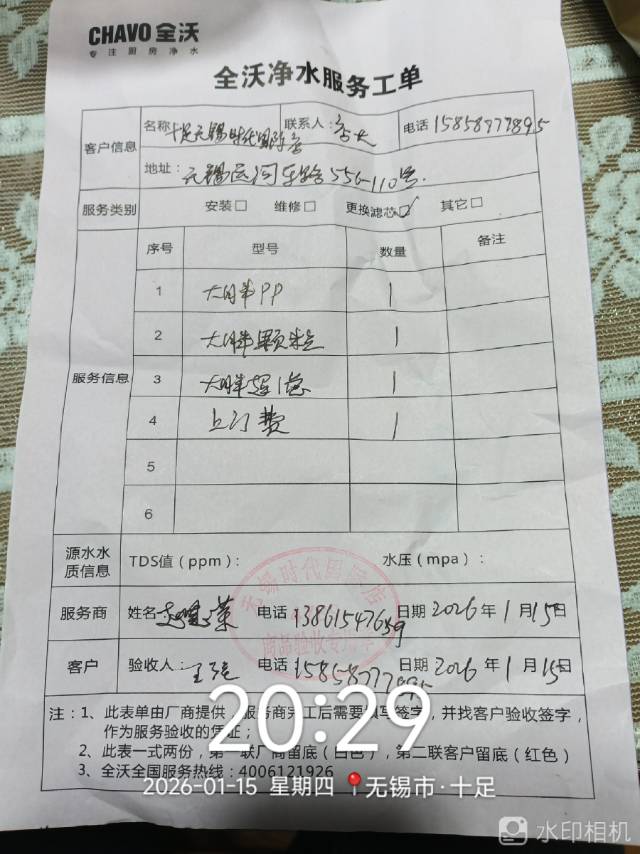 CHAVO全沃
专注厨房净水
全沃净水服务工单
客户信息
名称 十足无锡时代国际店 联系人: 店长 电话 15858777895
地址: 无锡运河东路556-110号.
服务类别 安装□ 维修□ 更换滤芯☑ 其它□
服务信息
序号 型号 数量 备注
1 大胖PP 1
2 大胖颗粒 1
3 大胖超滤 1
4 上门费 1
5
6
源水水质信息 TDS值(ppm): 水压(mpa):
服务商 姓名 电话 13861547659 日期 2026年1月15日
客户 验收人: 电话 15858777895 日期 2026年1月15日
无锡时代国际店
商品验收专用章
注:1、此表单由厂商提供,服务商完工后需要填写签字,并找客户验收签字,
作为服务验收的凭证;
2、此表一式两份,第一联厂商留底(白色),第二联客户留底(红色)
3、全沃全国服务热线:4006121926
20:29
2026-01-15 星期四 无锡市·十足
水印相机